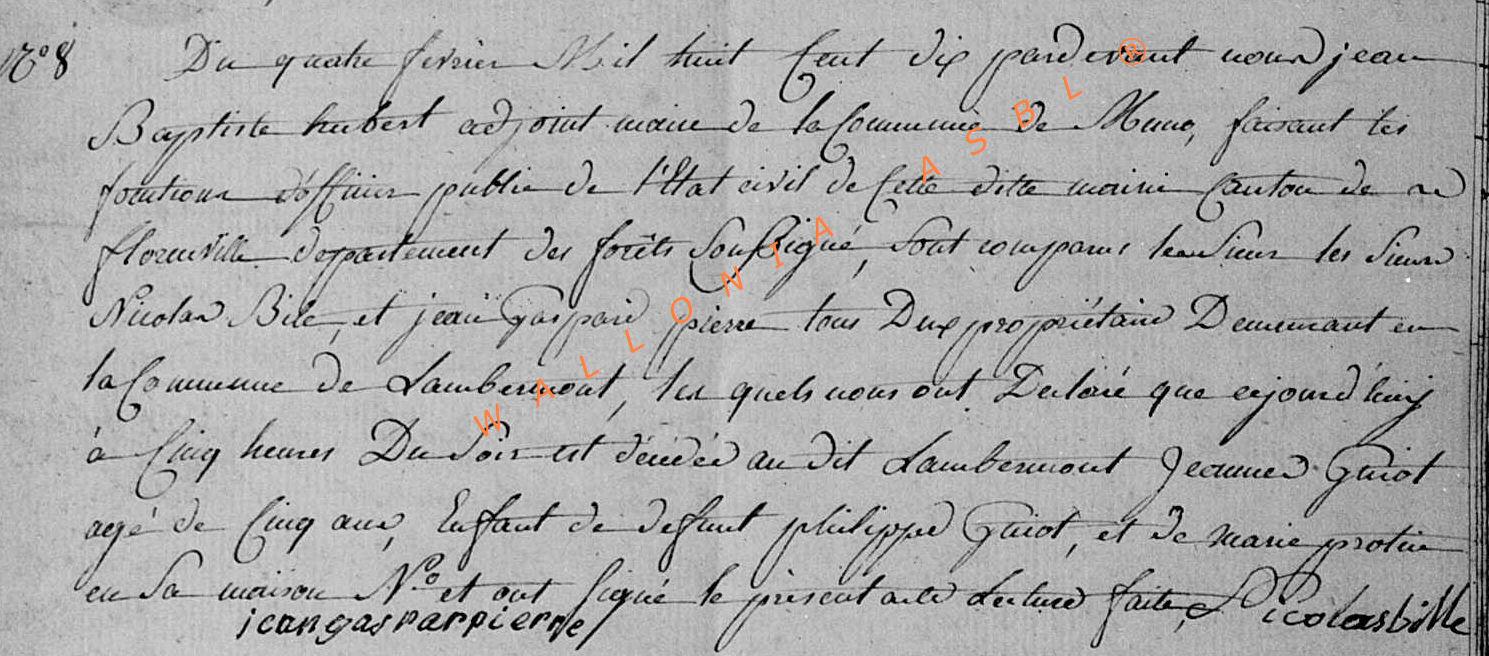 N° 8 Du quatre fevrier Mil huit Cent dix pardevant nous jean
Baptiste hubert adjoint maire de la Commune de Muno, faisant les
fonctions d'officier public de l'Etat civil de Cette ditte mairie Canton de
florenville departement des forêts Soussigné, sont comparus les Sieurs
Nicolas Bile, et jean Gaspard pierre tous Deux propriétaire Demeurant en
la Commune de Lambermont, les quels nous ont Declaré que cejourd'huy
à Cinq heures Du Soir est décédée au dit Lambermont Jeanne Guiot
agé de Cinq ans, Enfant de defunt philippe Guiot, et de marie protin
en Sa maison N° et ont signé le présent acte Lecture faite,
jean gaspar pierre Nicolas bille
WALLONIA ASBL ®